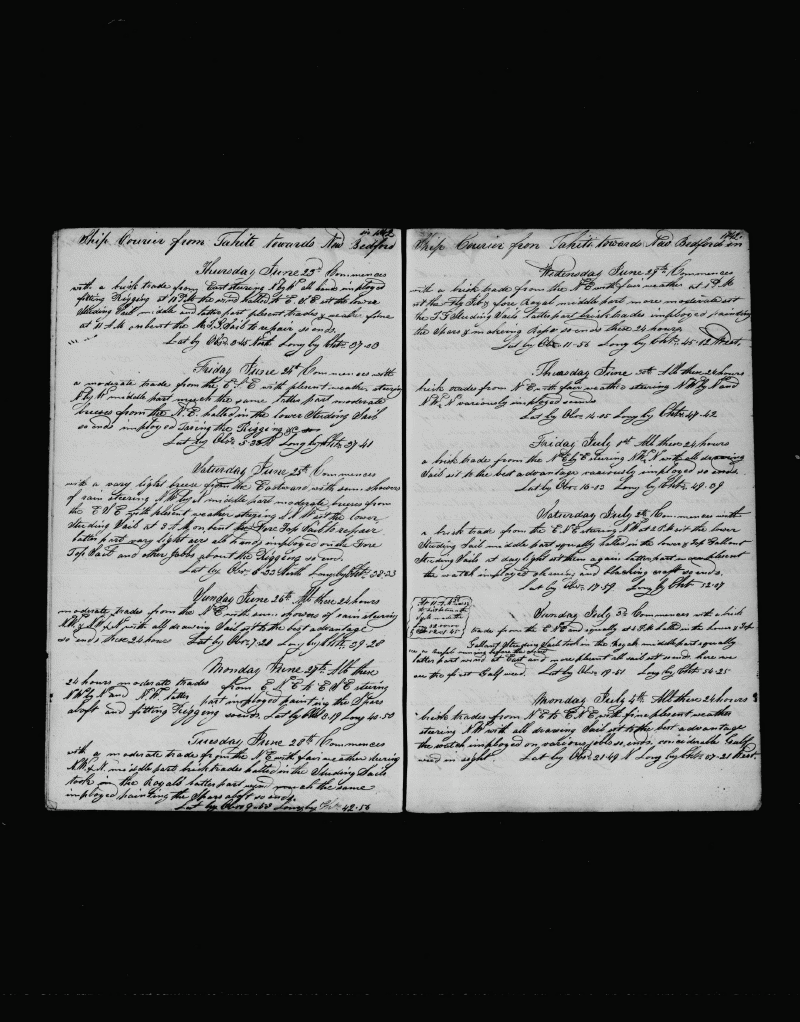 in 1842
Ship Courier from Tahiti towards New Bedford
Thursday June 23d Commences
with a brisk trade from East stearing N by W all hand imployed
fitting Rigging at 11 P.M. the wind halled to E N E set the lower
Studing Sail middle and latter part plesent trades & weather fine
at 11 A M unbent the Sail to repair so ends
Lat by Obs. 3.45 North Long by Chr. 37.03
Friday June 24th Commences with
a moderate trade from the E N E with plesent weather stearing
N by W middle part much the same latter part moderate
breeses from the N.E. halled in the lower Studing Sail
so ends imployed taring the Rigging &c
Lat by Obs. 5.33 N Long by Chr. 37.41
Saturday June 25th Commences
with a vary light breese from the Eastward with some showers
of rain stearing N.W. by N middle part moderate breeses from
the E N E with plesent weather stearing N N W set the lower
Studing Sail at 3 A.M. unbent the Fore Top Sail to repair
latter part vary light airs all hands imployed on the Fore
Top Sail and other jobs about the Rigging so end
Lat by Obs. 6.33 North Long by Chr. 38.33
Sunday June 26th All these 24 hours
moderate trades from the N E with some showers of rain stearing
with all drawing Sail set to the best advantage
so ends these 24 hours Lat by Obs. 7.28 Long by Chr. 39.28
Monday June 27th All these
24 hours moderate trades from E N E to E N E stearing
N W by N and N.W. latter part imployed painting the Spars
aloft and fitting Rigging so ends. Lat by Obs Long 40.50
Tuesday June 28th Commences
with a moderate trade from the N E with fair weather stearing
N.W. by N. middle part brisk trades halled in the Studing Sails
took in the Royals latter part wind much the same
imployed painting the Spars aloft so ends.
Lat by Obs 9.58 Long by Chr. 42.56
1842.
Ship Courier from Tahiti towards New Bedford in
Wednesday June 29th Commences
with a brisk trade from the N East fair weather at 1 P.M.
set the Fly Jib & fore Royal middle part more moderate set
the T G Studing Sails latter part brisk trades imployed painting
the Spars & making Rope so ends these 24 hours
Lat by Obs 11.56 Long by Chr. 45.12 West.
Thursday June 30th All these 24 hours
brisk trades from N E with fair weather stearing N W by N and
variously imployed so ends
Lat by Obs. 14.05 Long by Chr. 47.42
Friday July 1st All these 24 hours
a brisk trade from the N E by E stearing with all drawing
Sail set to the best advantage variously imployed so ends.
Lat by Obs. Long by Chr. 49.39
Saturday July 2d Commences with
a brisk trade from the E N E stearing N W at 2 P.M. set the lower
Studing Sail middle part squally halled in the lower & Top Gallant
Studing Sails at day light set them again latter part plesent
the watch imployed cleaning and blacking craft so ends.
Lat by Obs. 17.59 Long by Chr
Sunday July 3d Commences with a brisk
trade from the E N E and squally at 4 P.M. halled in the lower & Top
Gallant Studing Sails took in the Royals middle part squally
latter part wind at East and more plesent all sail set so ends. here we
see the first Gulf weed. Lat by Obs. 19.51 Long by Chr 54.25
Monday July 4th All these 24 hours
brisk trades from N E to E N E with fine plesent weather
stearing N W with all drawing Sail set to the best advantage
the watch imployed on various jobs so ends, considerable Gulf
weed in sight Lat by Obs. 21.49 N Long by Chr. 57.21 West.